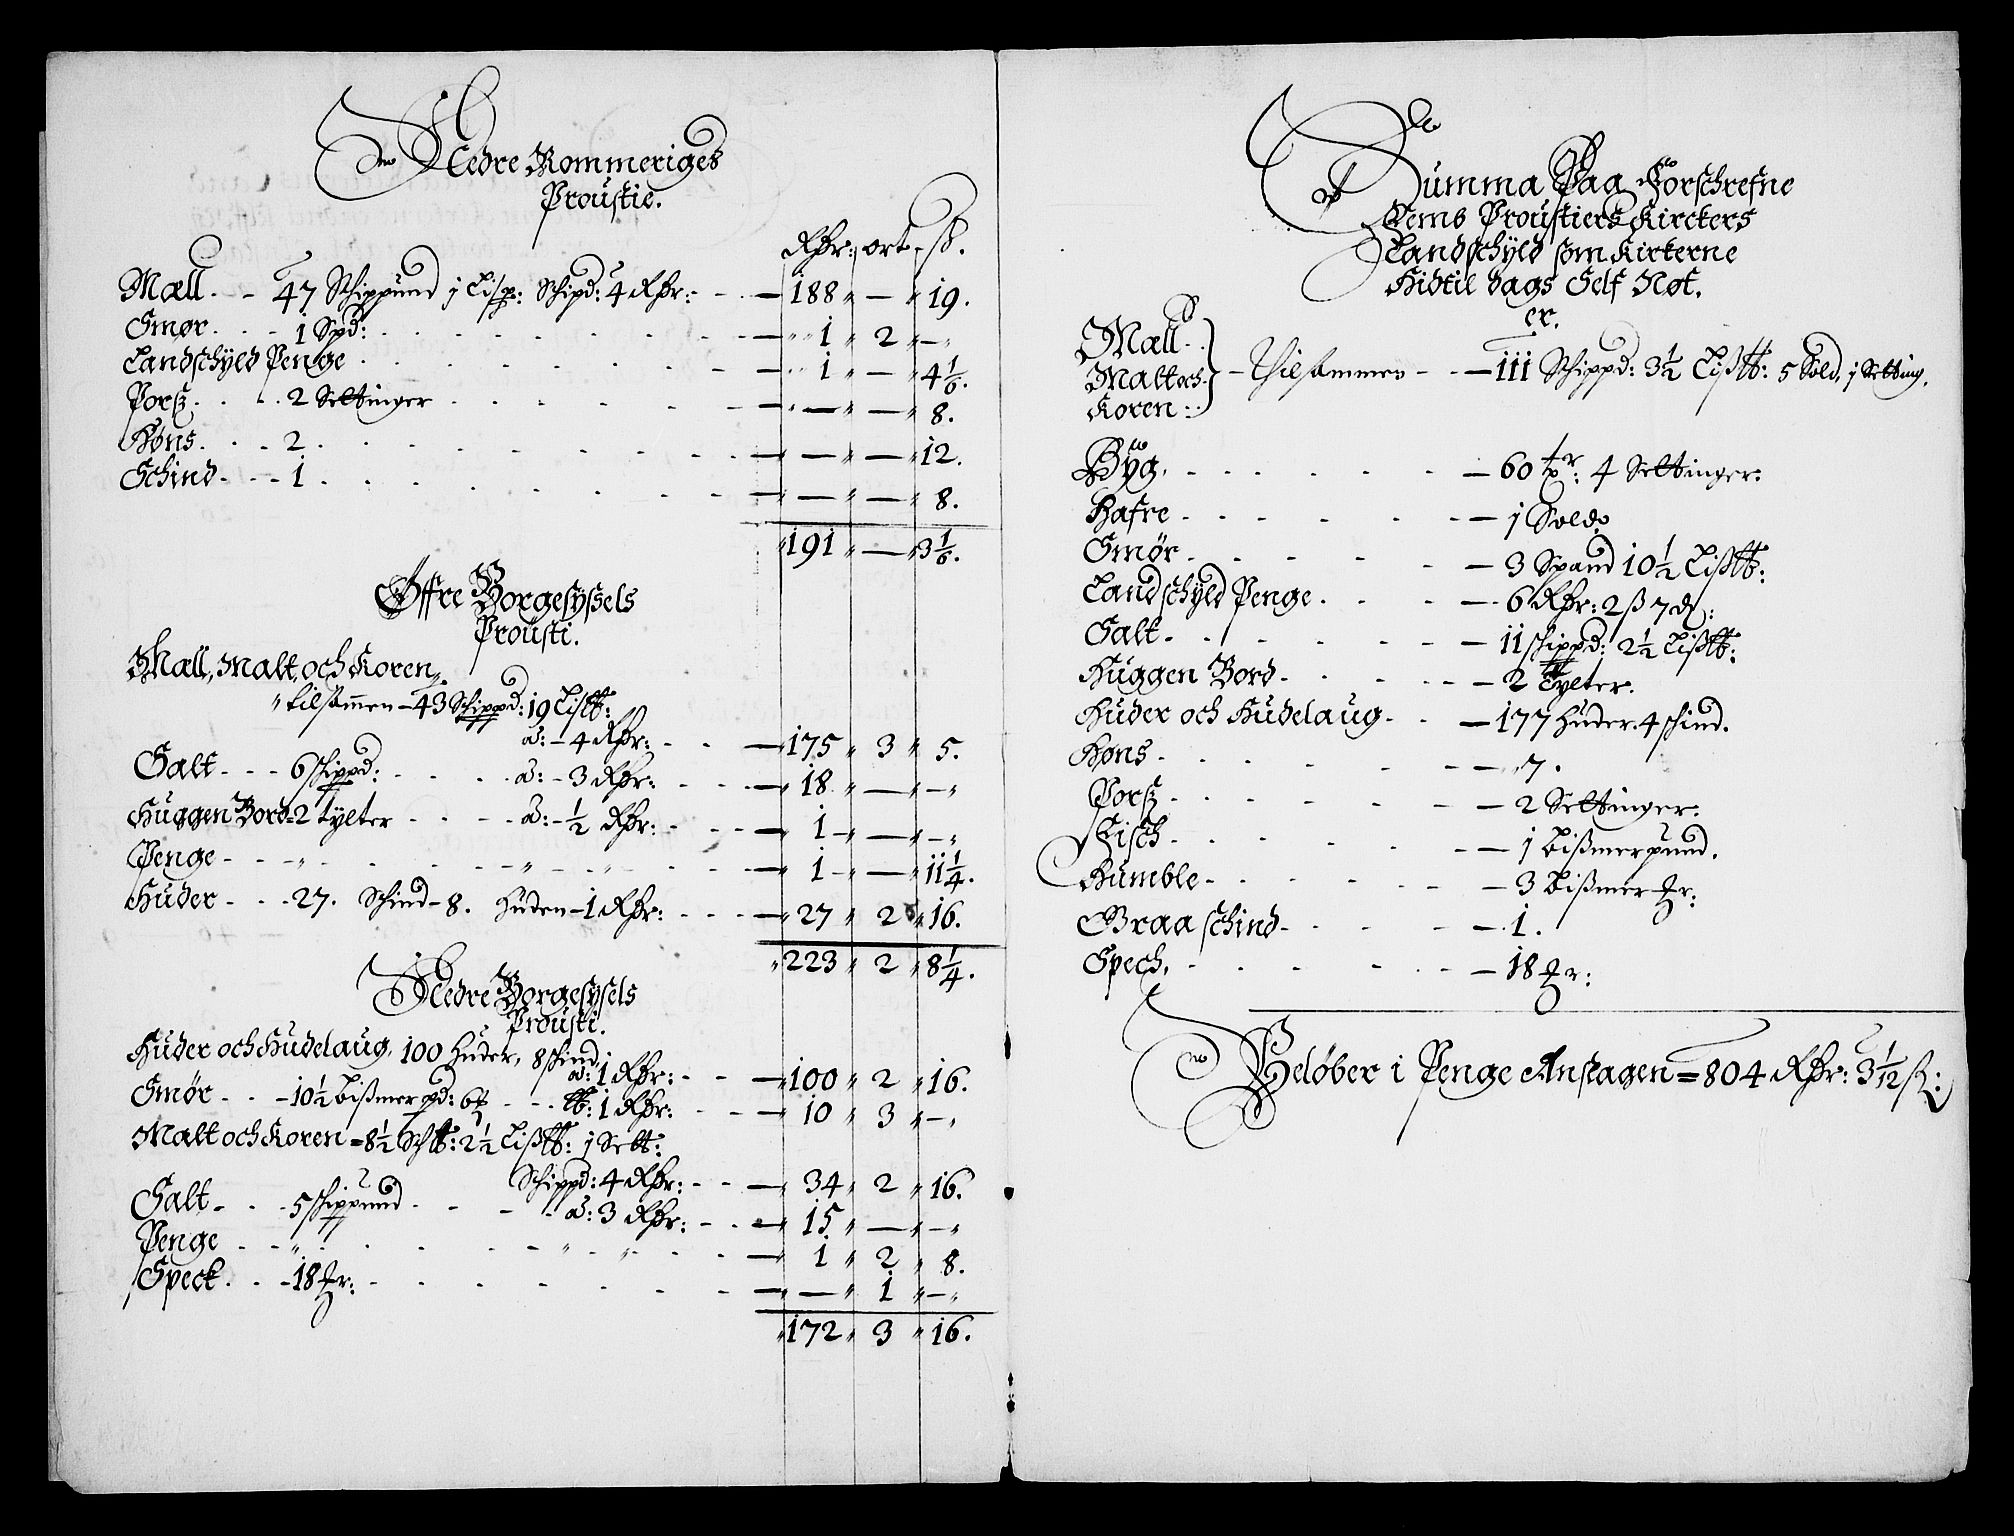 Nedre Rommeriges
Proustie.
Rdr: ort. ß.
Mæll. - 47 Schippund 1 Lisp: Schipd: 4 Rdr: - - 188 " — " 19.
Smør. - - 1 Spd: - - " 1 " 2 " — "
Landschyld Penge - - " 1 " — " 4 1/6.
Porsz. - - 2 Settinger - - " — " — " 8.
Høns. - - 2. - - — " — " 12.
Schind - - 1. - - — " — " 8.
191 " — " 3 1/6.
Øffre Borgesyßels
Prousti.
Mæll, Malt, och Koren,
tilsamen - 43 Schippd: 19 Lißlb:
a: - 4 Rdr: - - 175 " 3 " 5.
Salt - - - 6 schippd: - - a: - 3 Rdr: - - 18 " — " — "
Huggen Bord = 2 tylter - - a: - 1/2 Rdr: - - 1 - " — " — "
Penge - - " - - " - - 1 - " — " 11 1/4.
Huder - - - 27. Schind - 8. Huden - 1 Rdr: - - 27 " 2 " 16.
223 " 2 " 8 1/4.
Nedre Borgesysels
Prousti.
Huder och Hudelaug. 100 Huder, 8 schind,
a: 1 Rdr: - - 100 " 2 " 16.
Smør - - - 10 1/2 Bißmer pd: 6 - - lb: 1 Rdr: - - 10 " 3 " — "
Malt och Koren = 8 1/2 Schlb: 2 1/2 Lißlb: 1 Sett:
Schippd: 4 Rdr: - - 34 " 2 " 16.
Salt - - - 5 schippund - - a: 3 Rdr: - - 15 " — " — "
Penge - - " - - " - - 1 " 2 " 8.
Speck. - - 18 - - — " 1 " — "
172 " 3 " 16.
Summa Paa Forschrefne
Fems Proustiers Kirckers
Landschyld som Kirkerne
Hidtil dags Self Nøt.
er.
Mæll. -
Malt och - Thilsammen - - 111 Schippd: 3 1/2 Lißlb: 5 Sold, 1 Setting.
Koren:
Byg. - - 60 tr: 4 Settinger.
Hafre - - 1 Sold
Smør - - 3 Spand 10 1/2 Lißlb:
Landschyld Penge. - - 6 Rdr: 2 ß 7 d:
Salt - - 11 schippd: 2 1/2 Lißlb:
Huggen Bord - - 2 Tylter.
Huder och Hudelaug - - 177 Huder. 4 schind.
Høns - - 7.
Porsz - - 2 Settinger.
Fisch - - 1 Bißmerpund.
Humble - - 3 Bißmer
Graa schind - - 1.
Spech. - - 18
Beløber i Penge Anslagen = 804 Rdr: 3 1/12 ß: